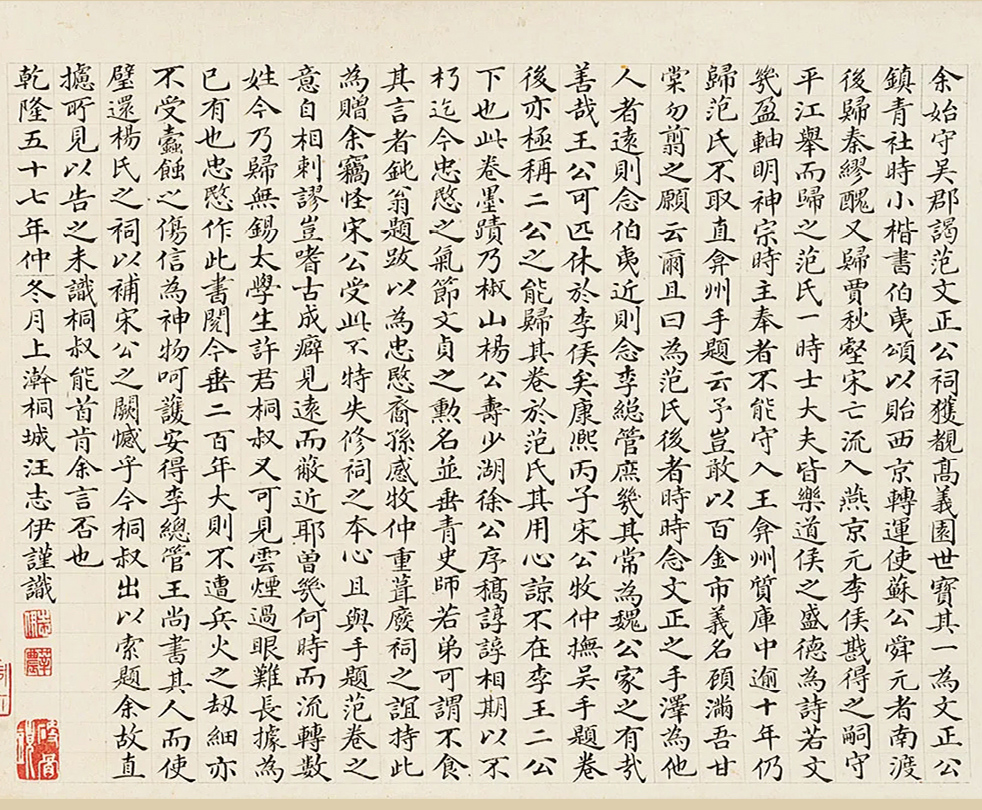 余始守吳郡謁范文正公祠獲覩高義園世寶其一為文正公
鎮青社時小楷書伯夷頌以貽西京轉運使蘇公舜元者南渡
後歸秦繆醜又歸賈秋壑宋亡流入燕京元李侯戡得之嗣守
平江舉而歸之范氏一時士大夫皆樂道侯之盛德為詩若文
幾盈軸明神宗時主奉者不能守入王弇州質庫中逾十年仍
歸范氏不取直弇州手題云予豈敢以百金市義名顧滿吾甘
棠勿翦之願云爾且曰為范氏後者時時念文正之手澤為他
人者遠則念伯夷近則念李總管庶幾其常為魏公家之有哉
善哉王公可匹休於李侯矣康熙丙子宋公牧仲撫吳手題卷
後亦極稱二公之能歸其卷於范氏其用心諒不在李王二公
下也此卷墨蹟乃椒山楊公壽少湖徐公序稿諄諄相期以不
朽迄今忠愍之氣節文貞之勲名並垂青史師若弟可謂不食
其言者鈍翁題跋以為忠愍裔孫感牧仲重葺廢祠之誼持此
為贈余竊怪宋公受此不特失修祠之本心且與手題范卷之
意自相刺謬豈嗜古成癖見遠而蔽近耶曽幾何時而流轉數
姓今乃歸無錫太學生許君桐叔又可見雲煙過眼難長據為
已有也忠愍作此書閱今垂二百年大則不遭兵火之刼細亦
不受蠹蝕之傷信為神物呵護安得李總管王尚書其人而使
璧還楊氏之祠以補宋公之闕憾乎今桐叔出以索題余故直
攄所見以告之未識桐叔能首肯余言否也
乾隆五十七年仲冬月上澣桐城汪志伊謹識